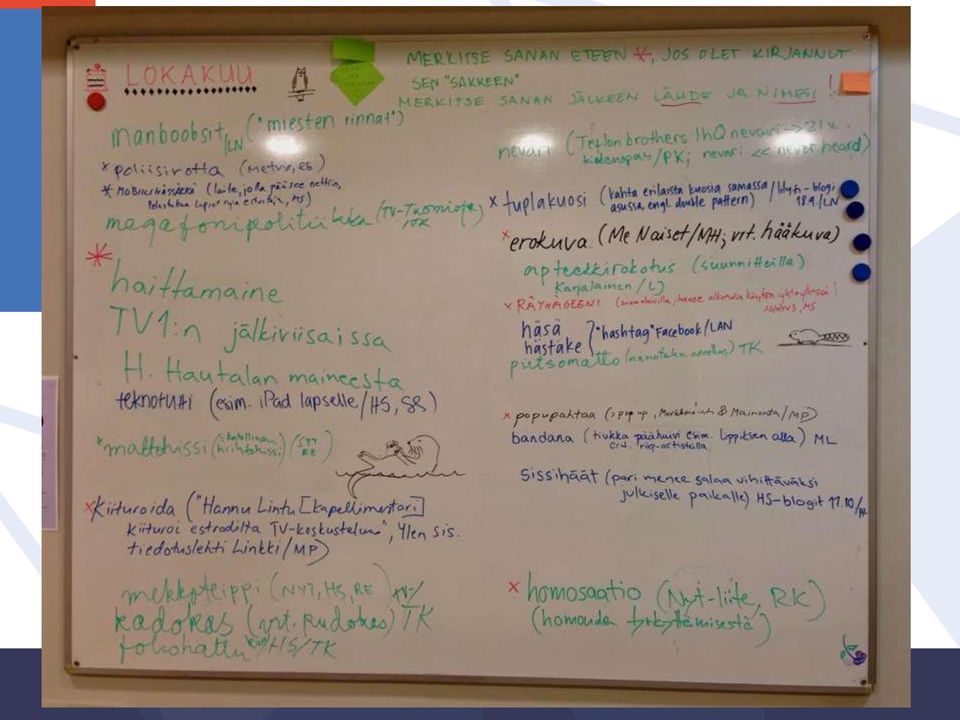 LOKAKUU
MERKITSE SANAN ETEEN *, JOS OLET KIRJANNUT
SEN "SÄKKEEN"
MERKITSE SANAN JÄLKEEN LÄHDE JA NIMESI!
manboobsit/LN ("miesten rinnat")
*poliisirotta (Metro, ES)
* (laite, jolla pääsee nettiin,
MS)
megafonipolitiikka (TV-Tuomioja,
TK
*
haittamaine
TV1:n jälkiviisaissa
H. Hautalan maineesta
teknotutti (esim. iPad lapselle/HS, SS)
*mattohissi (hiihtohissi) (STT
RE)
*kiituroida ("Hannu Lintu [kapellimestari]
kiituroi estradilta TV-keskusteluun", Ylen sis.
tiedotuslehti Linkki/MP)
mekkoteippi (NYT, HS, RE)
kadokas (vrt. pudokas) TK
foliohattu HS/TK
nevari (Teflon brothers: IhQ nevari → 21x
kidenspas/PK; nevari << never heard)
*tuplakuosi (kahta erilaista kuosia samassa
asussa, engl. double pattern) / lily.fi-blogi
18.9./LN
*erokuva (Me Naiset/MH; vrt. hääkuva)
apteekkirokotus (suunnitteilla)
Karjalainen/LJ
*RÄYHÄGEENI
häsä
hästäke } "hashtag" Facebook/LAN
pietsomatto TK
*popupahtaa (> pop up, Markkinointi & Mainonta/MP)
bandana (tiukka päähuivi esim. lippiksen alla) ML
räp-artistilla
sissihäät (pari menee salaa vihittäväksi
julkiselle paikalle) HS-blogit 17.10/HL
*homosaatio (Nyt-liite, RK)
(homouden